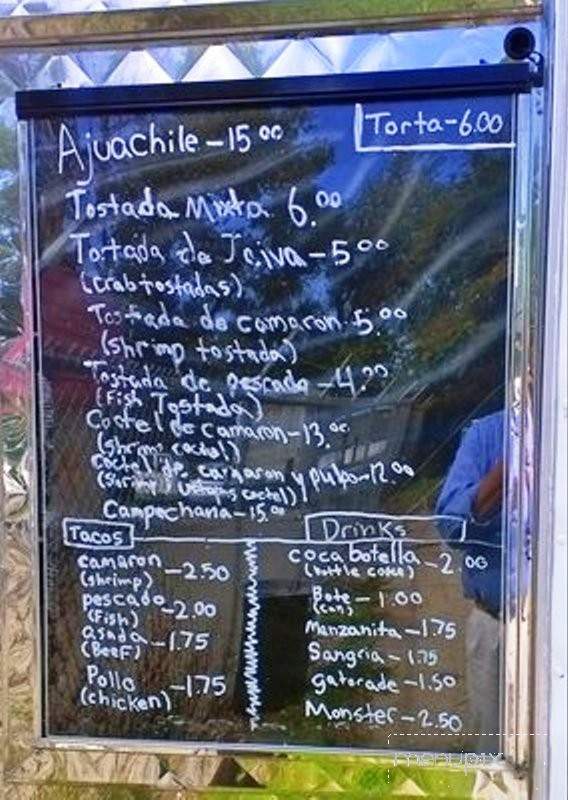 Ajuachile - 15 00
Torta - 6.00
Tostada Mixta 6.00
Tostada de Jaiva - 5 00
(Crab tostadas)
Tostada de camaron 5.00
(shrimp tostada)
Tostada de pescado - 4.00
(Fish Tostada)
Coctel de camaron - 13.00
(shrimp coctel)
Coctel de camaron y pulpo - 12.00
(shrimp coctel)
Campechana - 15.00
Tacos
camaron - 2.50
(shrimp)
pescado - 2.00
(Fish)
asada - 1.75
(BeeF)
Pollo - 1.75
(chicken)
Drinks
coca botella - 2.00
(bottle coke)
Bote - 1.00
(can)
Manzanita - 1.75
Sangria - 1.75
gatorade - 1.50
Monster - 2.50
menupix